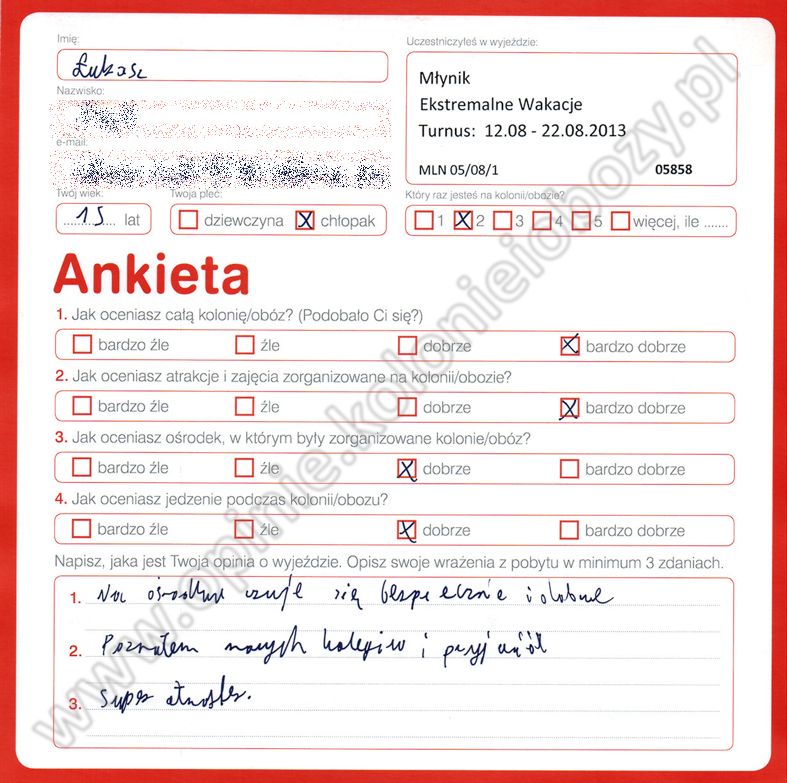 Imię:
Łukasz
Nazwisko:
e-mail:
Twój wiek:
15 lat
Twoja płeć:
dziewczyna chłopak
Uczestniczyłeś w wyjeździe:
Młynik
Ekstremalne Wakacje
Turnus: 12.08 - 22.08.2013
MLN 05/08/1 05858
Który raz jesteś na kolonii/obozie?
1 2 3 4 5 więcej, ile .......
Ankieta
1. Jak oceniasz całą kolonię/obóz? (Podobało Ci się?)
bardzo źle źle dobrze bardzo dobrze
2. Jak oceniasz atrakcje i zajęcia zorganizowane na kolonii/obozie?
bardzo źle źle dobrze bardzo dobrze
3. Jak oceniasz ośrodek, w którym były zorganizowane kolonie/obóz?
bardzo źle źle dobrze bardzo dobrze
4. Jak oceniasz jedzenie podczas kolonii/obozu?
bardzo źle źle dobrze bardzo dobrze
Napisz, jaka jest Twoja opinia o wyjeździe. Opisz swoje wrażenia z pobytu w minimum 3 zdaniach.
1. Na ośrodku czuje się bezpiecznie i
2. Poznałem nowych kolegów i przyjaciół
3. Super
www.opinie.kolonieiobozy.pl